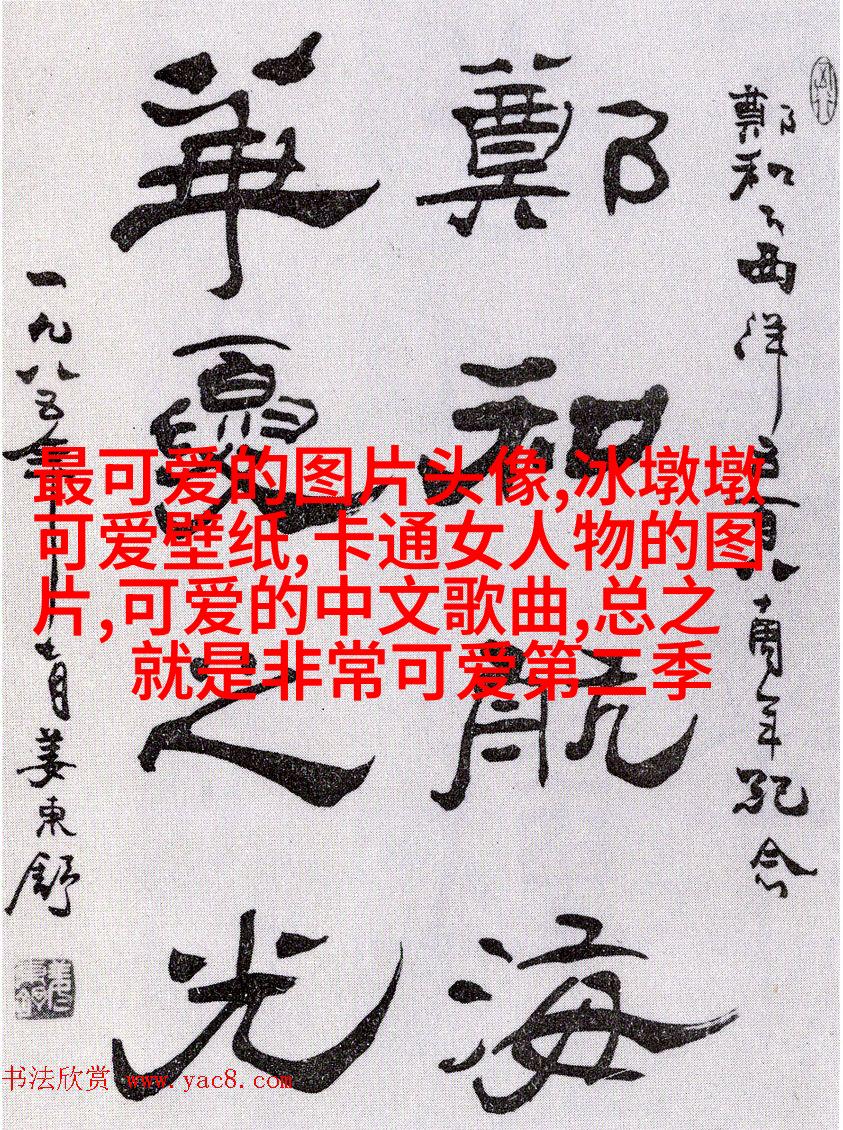 鄭和下西洋五百八十周年紀念
鄭和航海
華夏之光
一九八五年 月姜東舒
最可爱的图片头像,冰墩墩
可爱壁纸,卡通女人物的图
片,可爱的中文歌曲,总之
就是非常可爱第二季
书法欣赏 www.yac8.com